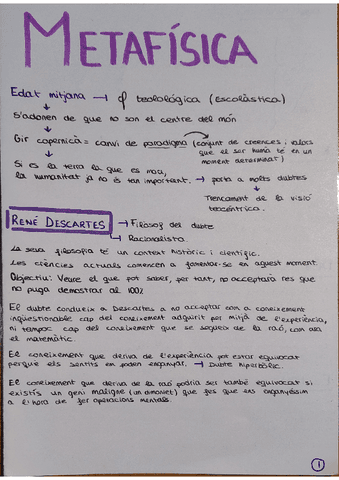 METAFÍSICA
Edat mitjana → φ teològica (escolàstica)
S'adonen de que no son el centre del món
Gir copernicà = canvi de paradigma (conjunt de creences i valors
que el ser humà té en un
moment determinat)
Si es la terra la que es mou,
la humanitat ja no és tan important. → porta a molts dubtes
Trencament de la visió
teocèntrica.
RENÉ DESCARTES → Filòsof del dubte
→ Racionalista.
La seva filosofia té un context històric i científic.
Les ciències actuals comencen a fomentar-se en aquest moment.
Objectiu: Veure el que pot saber, per tant, no acceptarà res que
no puga demostrar al 100%
El dubte condueix a Descartes a no acceptar com a coneixement
inqüestionable cap del coneixement adquirit per mitjà de l'experiència,
ni tampoc cap del coneixement que se segueix de la raó, com ara
el matemàtic.
El coneixement que deriva de l'experiència pot estar equivocat
perquè els sentits en poden enganyar. → Dubte hiperbòlic.
El coneixement que deriva de la raó podria ser també equivocat si
existís un geni maligne (un dimoniet) que fes que ens enganyéssim
a l'hora de fer operacions mentals.
1